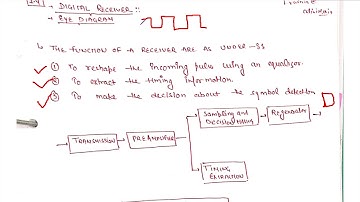 → DIGITAL RECEIVER :-
→ EYE DIAGRAM
↳ THE FUNCTION OF A RECEIVER ARE AS UNDER :-
① To reshape the incoming pulse using an equaliser.
② To extract the timing information.
③ To make the decision about the symbol detection
Sampling and
Regenerator
TRANSMISSION
PREAMPLIFIER
TIMING
EXTRACTION